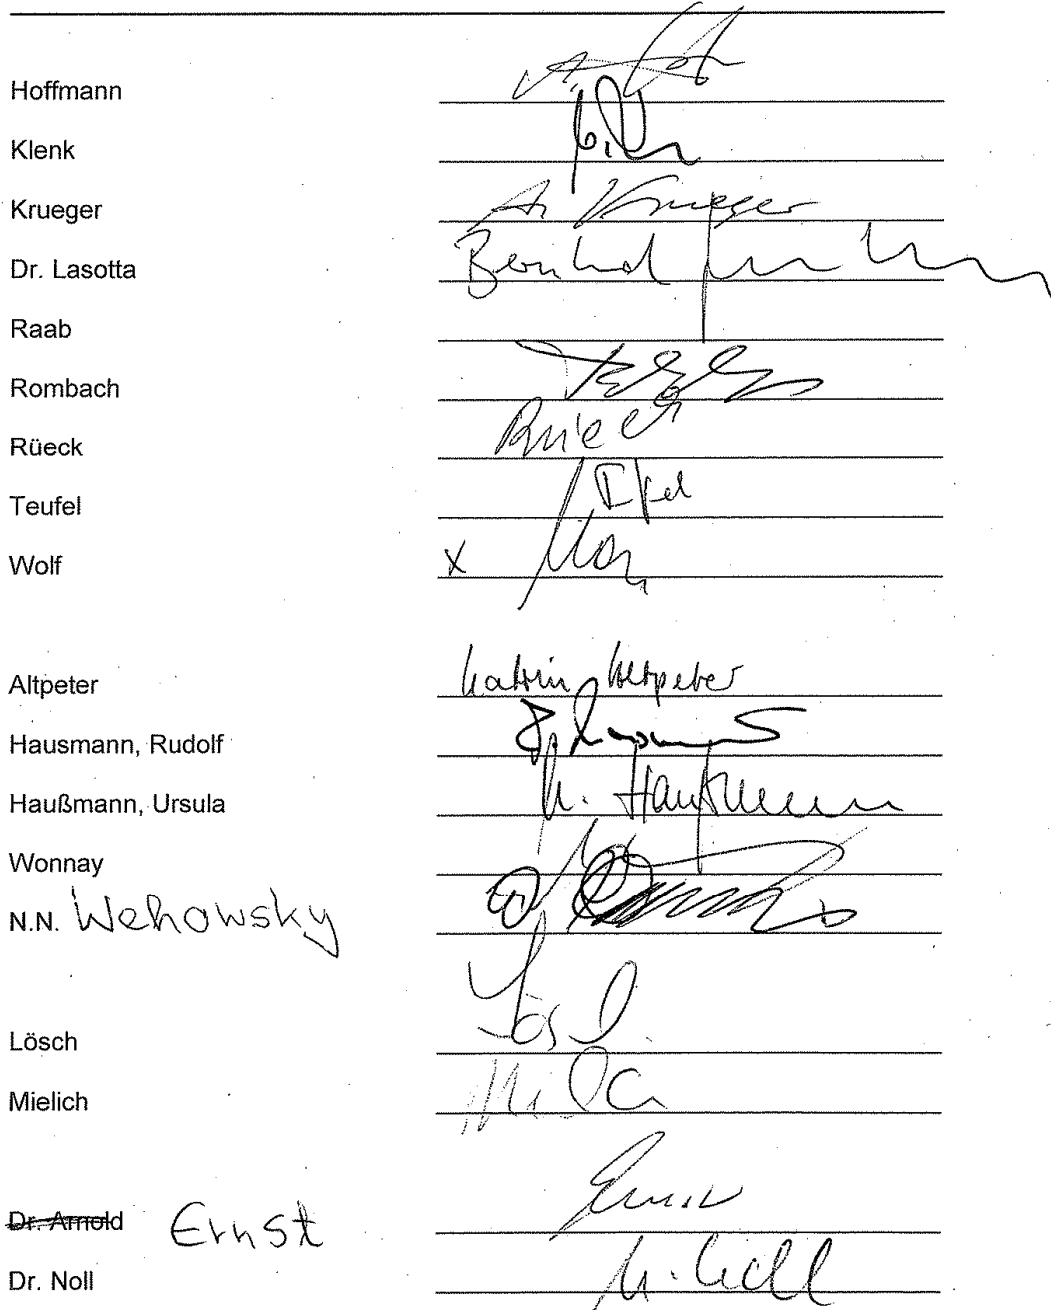 Hoffmann
Klenk
Krueger A. Krueger
Dr. Lasotta Bernhard
Raab
Rombach
Rüeck Rüeck
Teufel
Wolf x
Altpeter Katrin Altpeter
Hausmann, Rudolf
Haußmann, Ursula U. Haußmann
Wonnay
N.N. Wehowsky
Lösch Lösch
Mielich
Dr. Arnold Ernst Ernst
Dr. Noll U. Noll